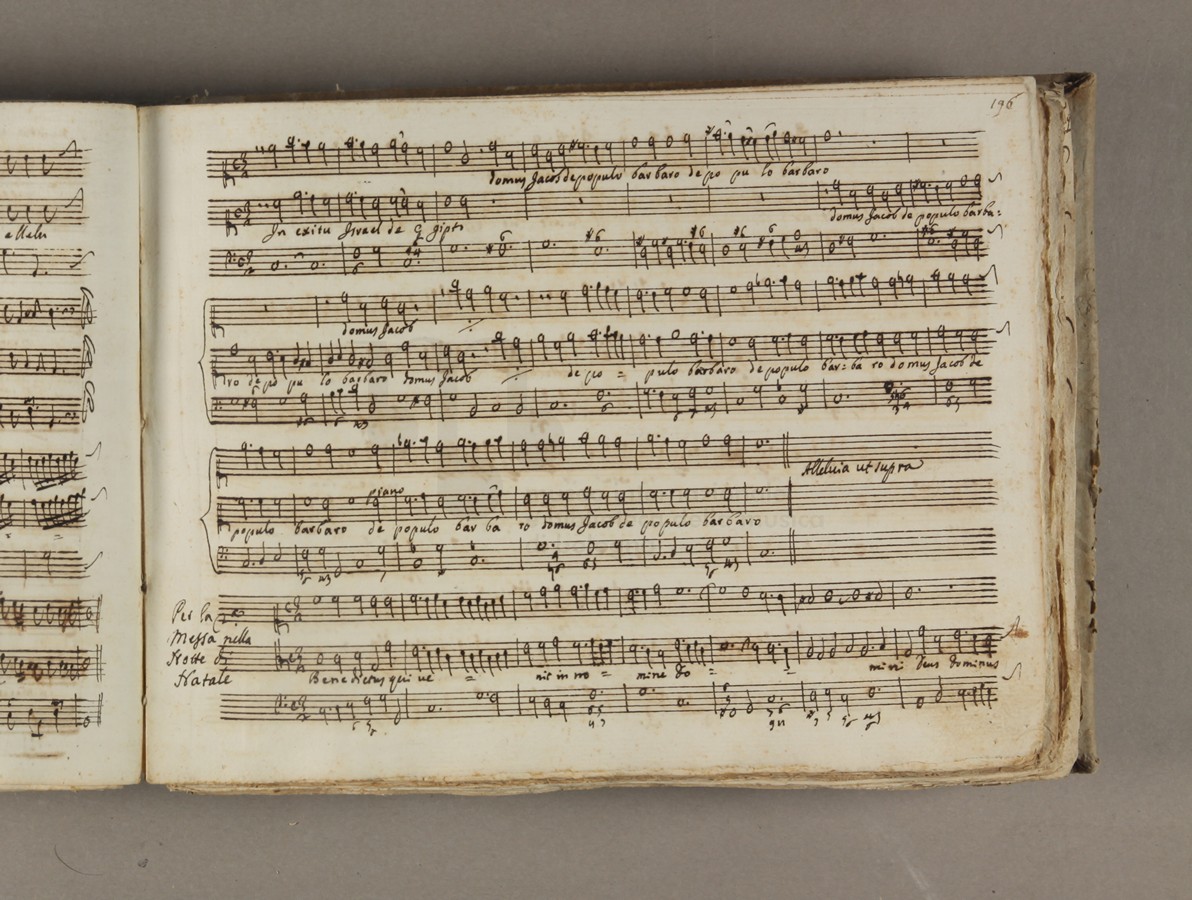 196
domus Jacob de populo barbaro de po pu lo barbaro
alleluia
In exitu Israel de
domus Jacob de populo barba=
domus Jacob
ro de po pu lo barbaro domus Jacob de po = pulo barbaro de populo bar=ba ro domus Jacob de
Alleluia ut supra
piano
populo barbaro de populo bar ba ro domus Jacob de populo barbaro
Per la
Messa nella
Notte di
Natale
Benedictus qui ve = nit in no = mine do = mini Deus Dominus